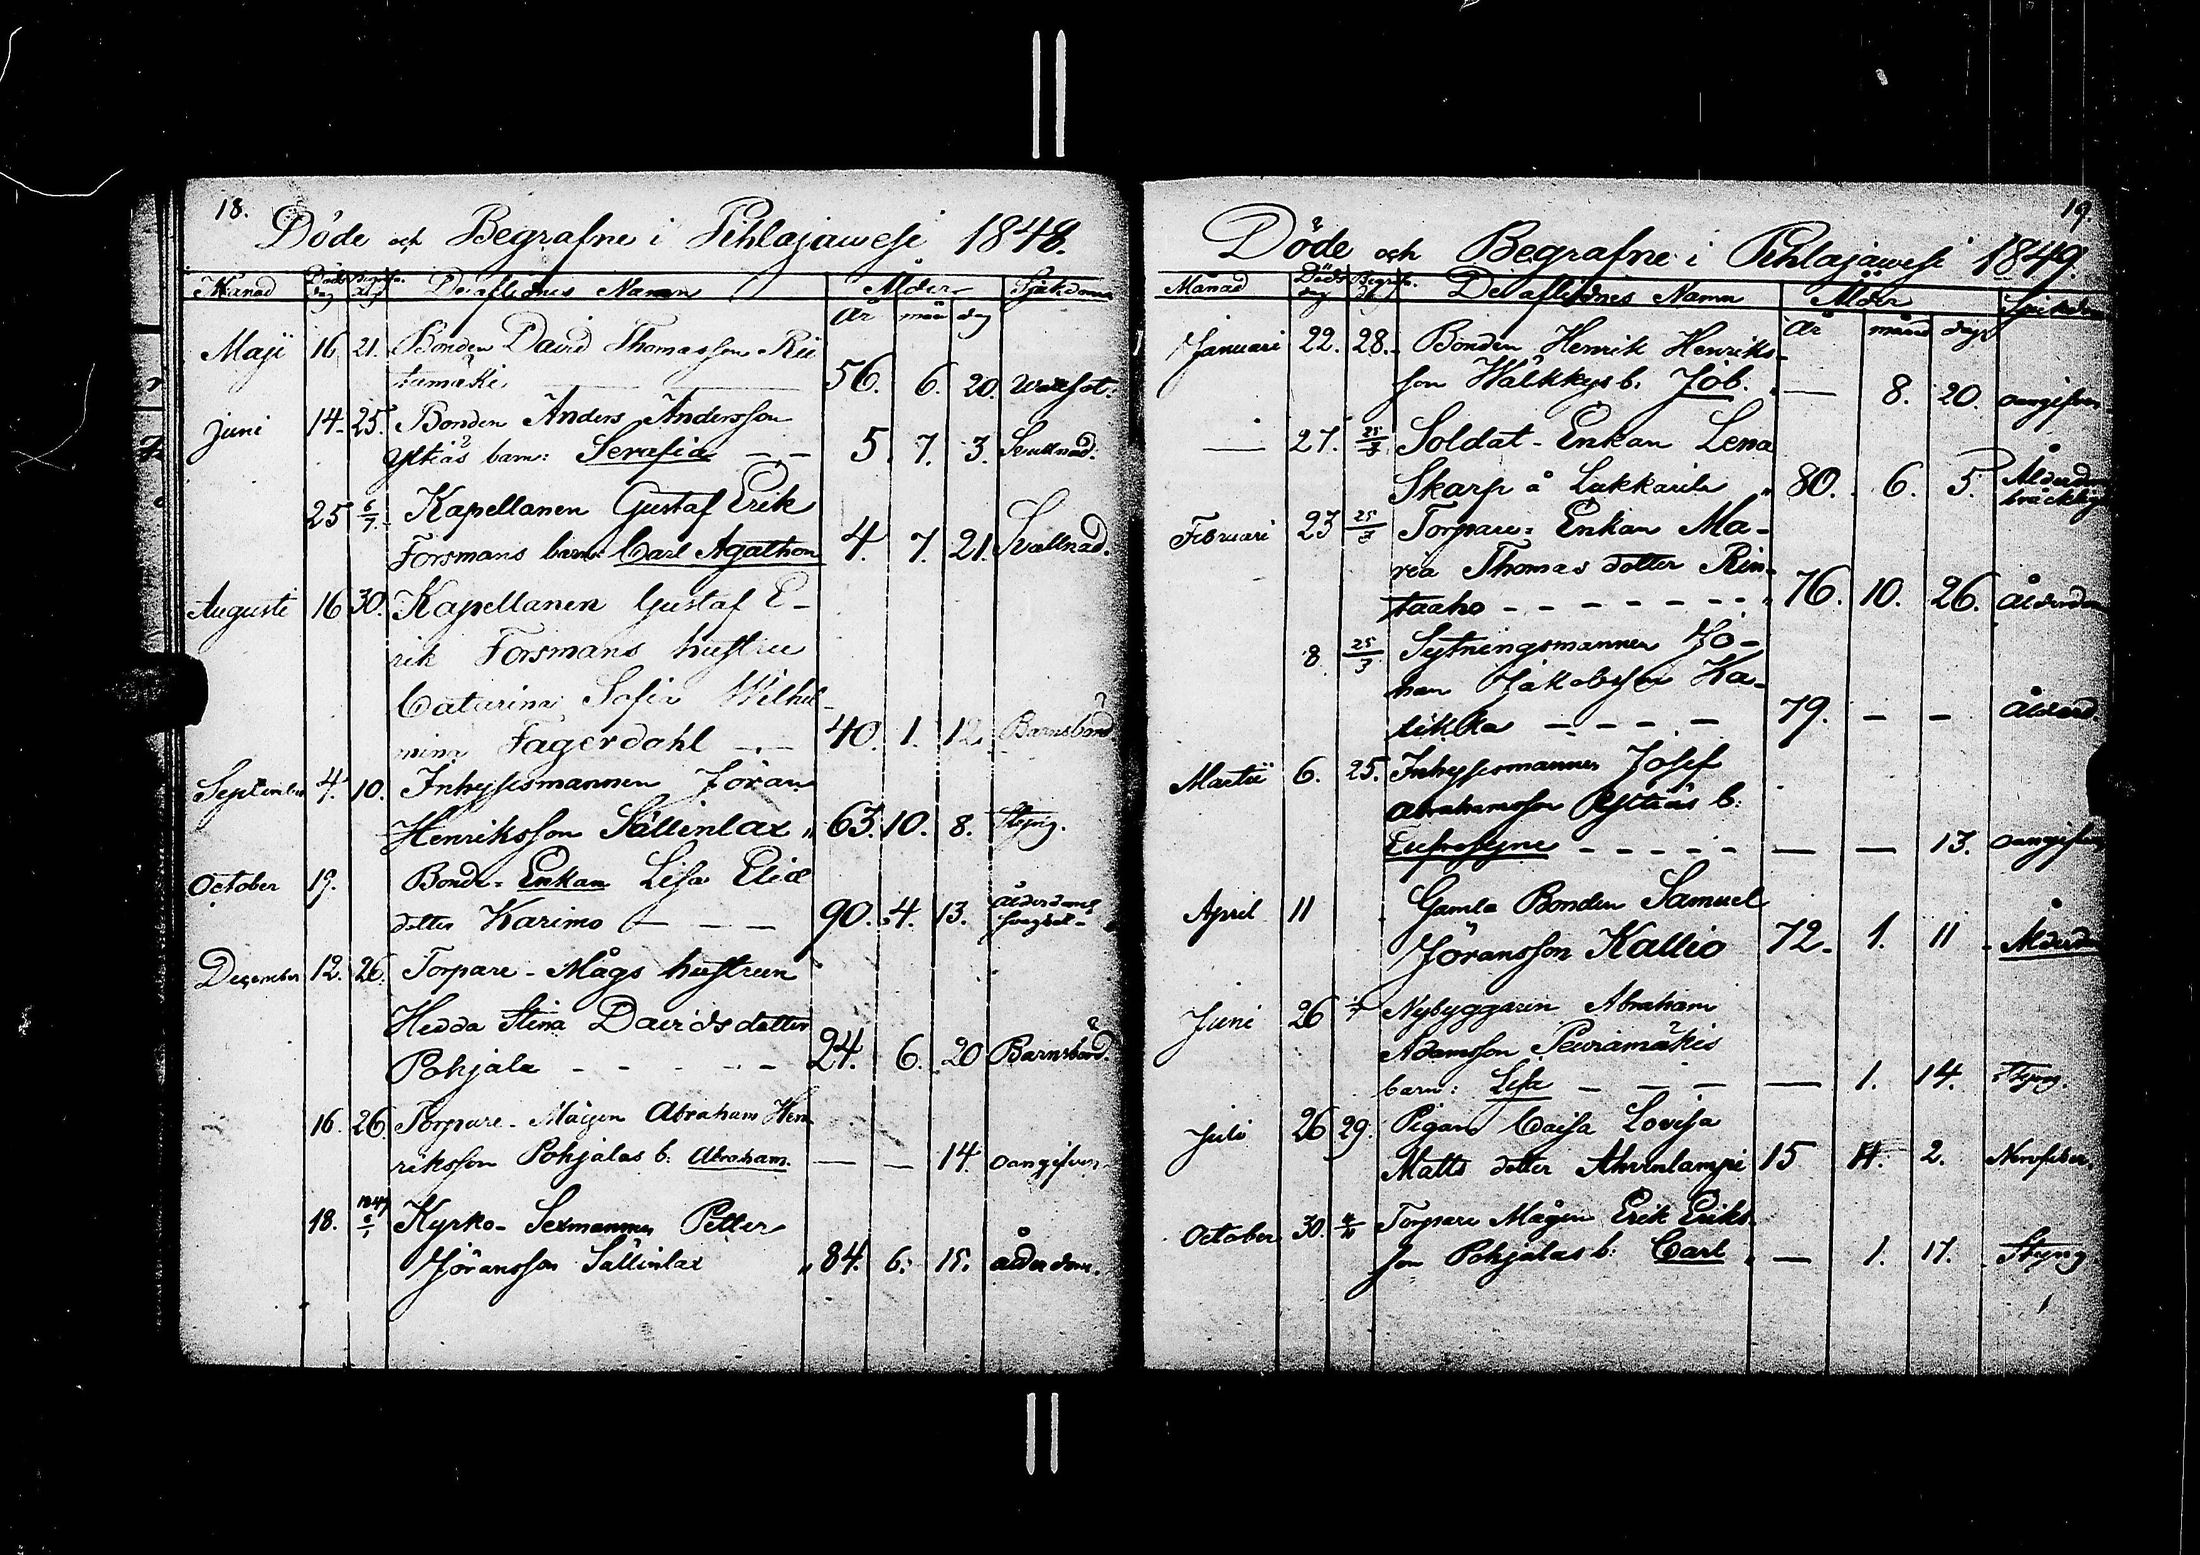 18.
Döde och Begrafne i Pihlajawesi 1848.
Månad Döds dag Begrafn. dag De aflidnes Namn Ålder Sjukdom
År mån dag
Maji 16 21. Bonden David Thomasson Riu
tumäki 56. 6. 20. Wattsot.
Juni 14. 25. Bonden Anders Andersson
Ylkiäs barn: Serafia 5. 7. 3. Svullnad.
25 6/7. Kapellanen Gustaf Erik
Forsmans barn Carl Agathon 4. 7. 21. Svullnad.
Augusti 16 30. Kapellanen Gustaf E-
rik Forsmans hustru
Catarina Sofia Wilhel-
mina Fagerdahl 40. 1. 12. Barnsbörd
September 4. 10. Inhysesmannen Jöran
Henriksson Sällinlax 63. 10. 8. Styng.
October 19. Bonde-Enkan Lisa Eliæ
dotter Karimo 90. 4. 13. Ålderdoms
December 12. 26. Torpare-Mågs hustrun
Hedda Stina Davidsdotter
Pohjala 24. 6. 20 Barnsbörd.
16. 26. Torpare-Mågen Abraham Hen
riksson Pohjalas b. Abraham. — — 14. oangifven
18. 1849 6/1 Kyrko-Sexmannen Petter
Jöransson Sällinlax " 84. 6. 15. ålderdom.
19.
Döde och Begrafne i Pihlajawesi 1849.
Månad Döds dag Begrafn. dag De aflidnes Namn Ålder Sjukdom
År månd dagr
Januari 22. 28. Bonden Henrik Henriks-
son Wälkkys b. Job. — 8. 20. oangifven
— 27. 25/3 Soldat-Enkan Lena
Skarp å Lukkarila " 80. 6. 5. Ålderdoms
bräcklig
Februari 23 25/3 Torpare-Enkan Ma-
ria Thomas dotter Rin-
taaho 76. 10. 26. Ålderdom
8. 25/3 Sytningsmannen Jo-
han Jakobsson Ka-
tikka 79. — — Ålderd.
Martii 6. 25. Inhysesmannen Josef
Abrahamsson Ylkiäs b:
Eufrosyne — — 13. oangifven
April 11 Gamla Bonden Samuel
Jöransson Kallio 72. 1. 11 Ålderdom
Juni 26 Nybyggaren Abraham
Adamsson Peuramäkis
barn: Lisa — 1. 14. Styng.
Juli 26 29. Pigan Caisa Lovisa
Matts dotter Ahvenlampi 15 11. 2. Nervfeber.
October 30. Torpare Mågen Erik Eriks-
son Pohjalas b: Carl — 1. 17. Styng